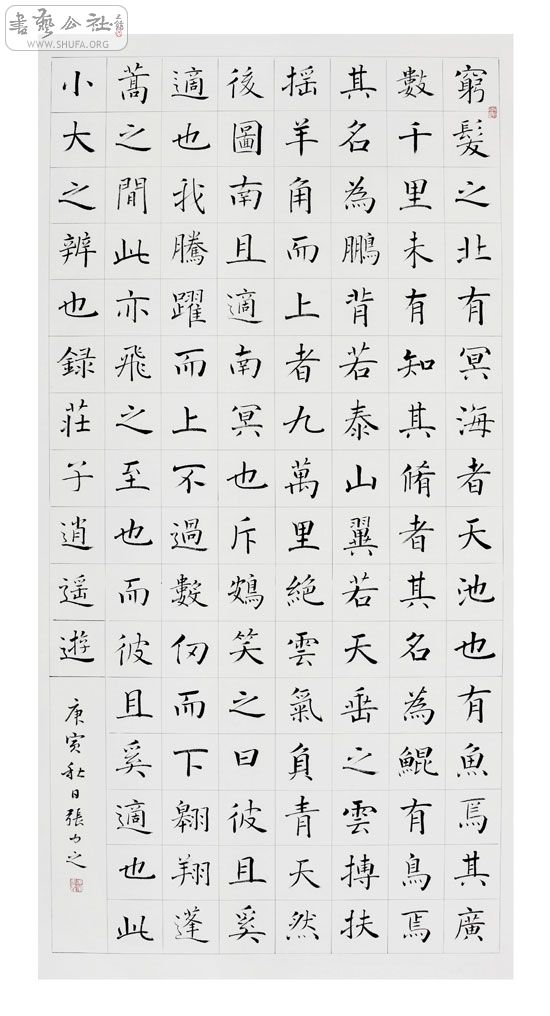 書藝公社
WWW.SHUFA.ORG
窮髮之北有冥海者天池也有魚焉其廣
數千里未有知其脩者其名為鯤有鳥焉
其名為鵬背若泰山翼若天垂之雲搏扶
揺羊角而上者九萬里絕雲氣負青天然
後圖南且適南冥也斥鴳笑之曰彼且奚
適也我騰躍而上不過數仞而下翱翔蓬
蒿之間此亦飛之至也而彼且奚適也此
小大之辨也錄莊子逍遥遊
庚寅秋日張少之